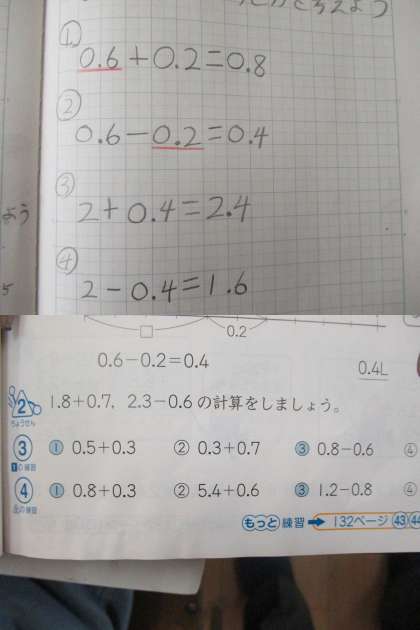 ①
0.6+0.2=0.8
②
0.6-0.2=0.4
③
2+0.4=2.4
④
2-0.4=1.6
よう
5
□ 0.2
0.6-0.2=0.4
0.4L
2 1.8+0.7, 2.3-0.6 の計算をしましょう。
③ ① 0.5+0.3 ② 0.3+0.7 ③ 0.8-0.6 ④
の練習
④ ① 0.8+0.3 ② 5.4+0.6 ③ 1.2-0.8 ④
の練習
もっと練習 → 132ページ 43 44